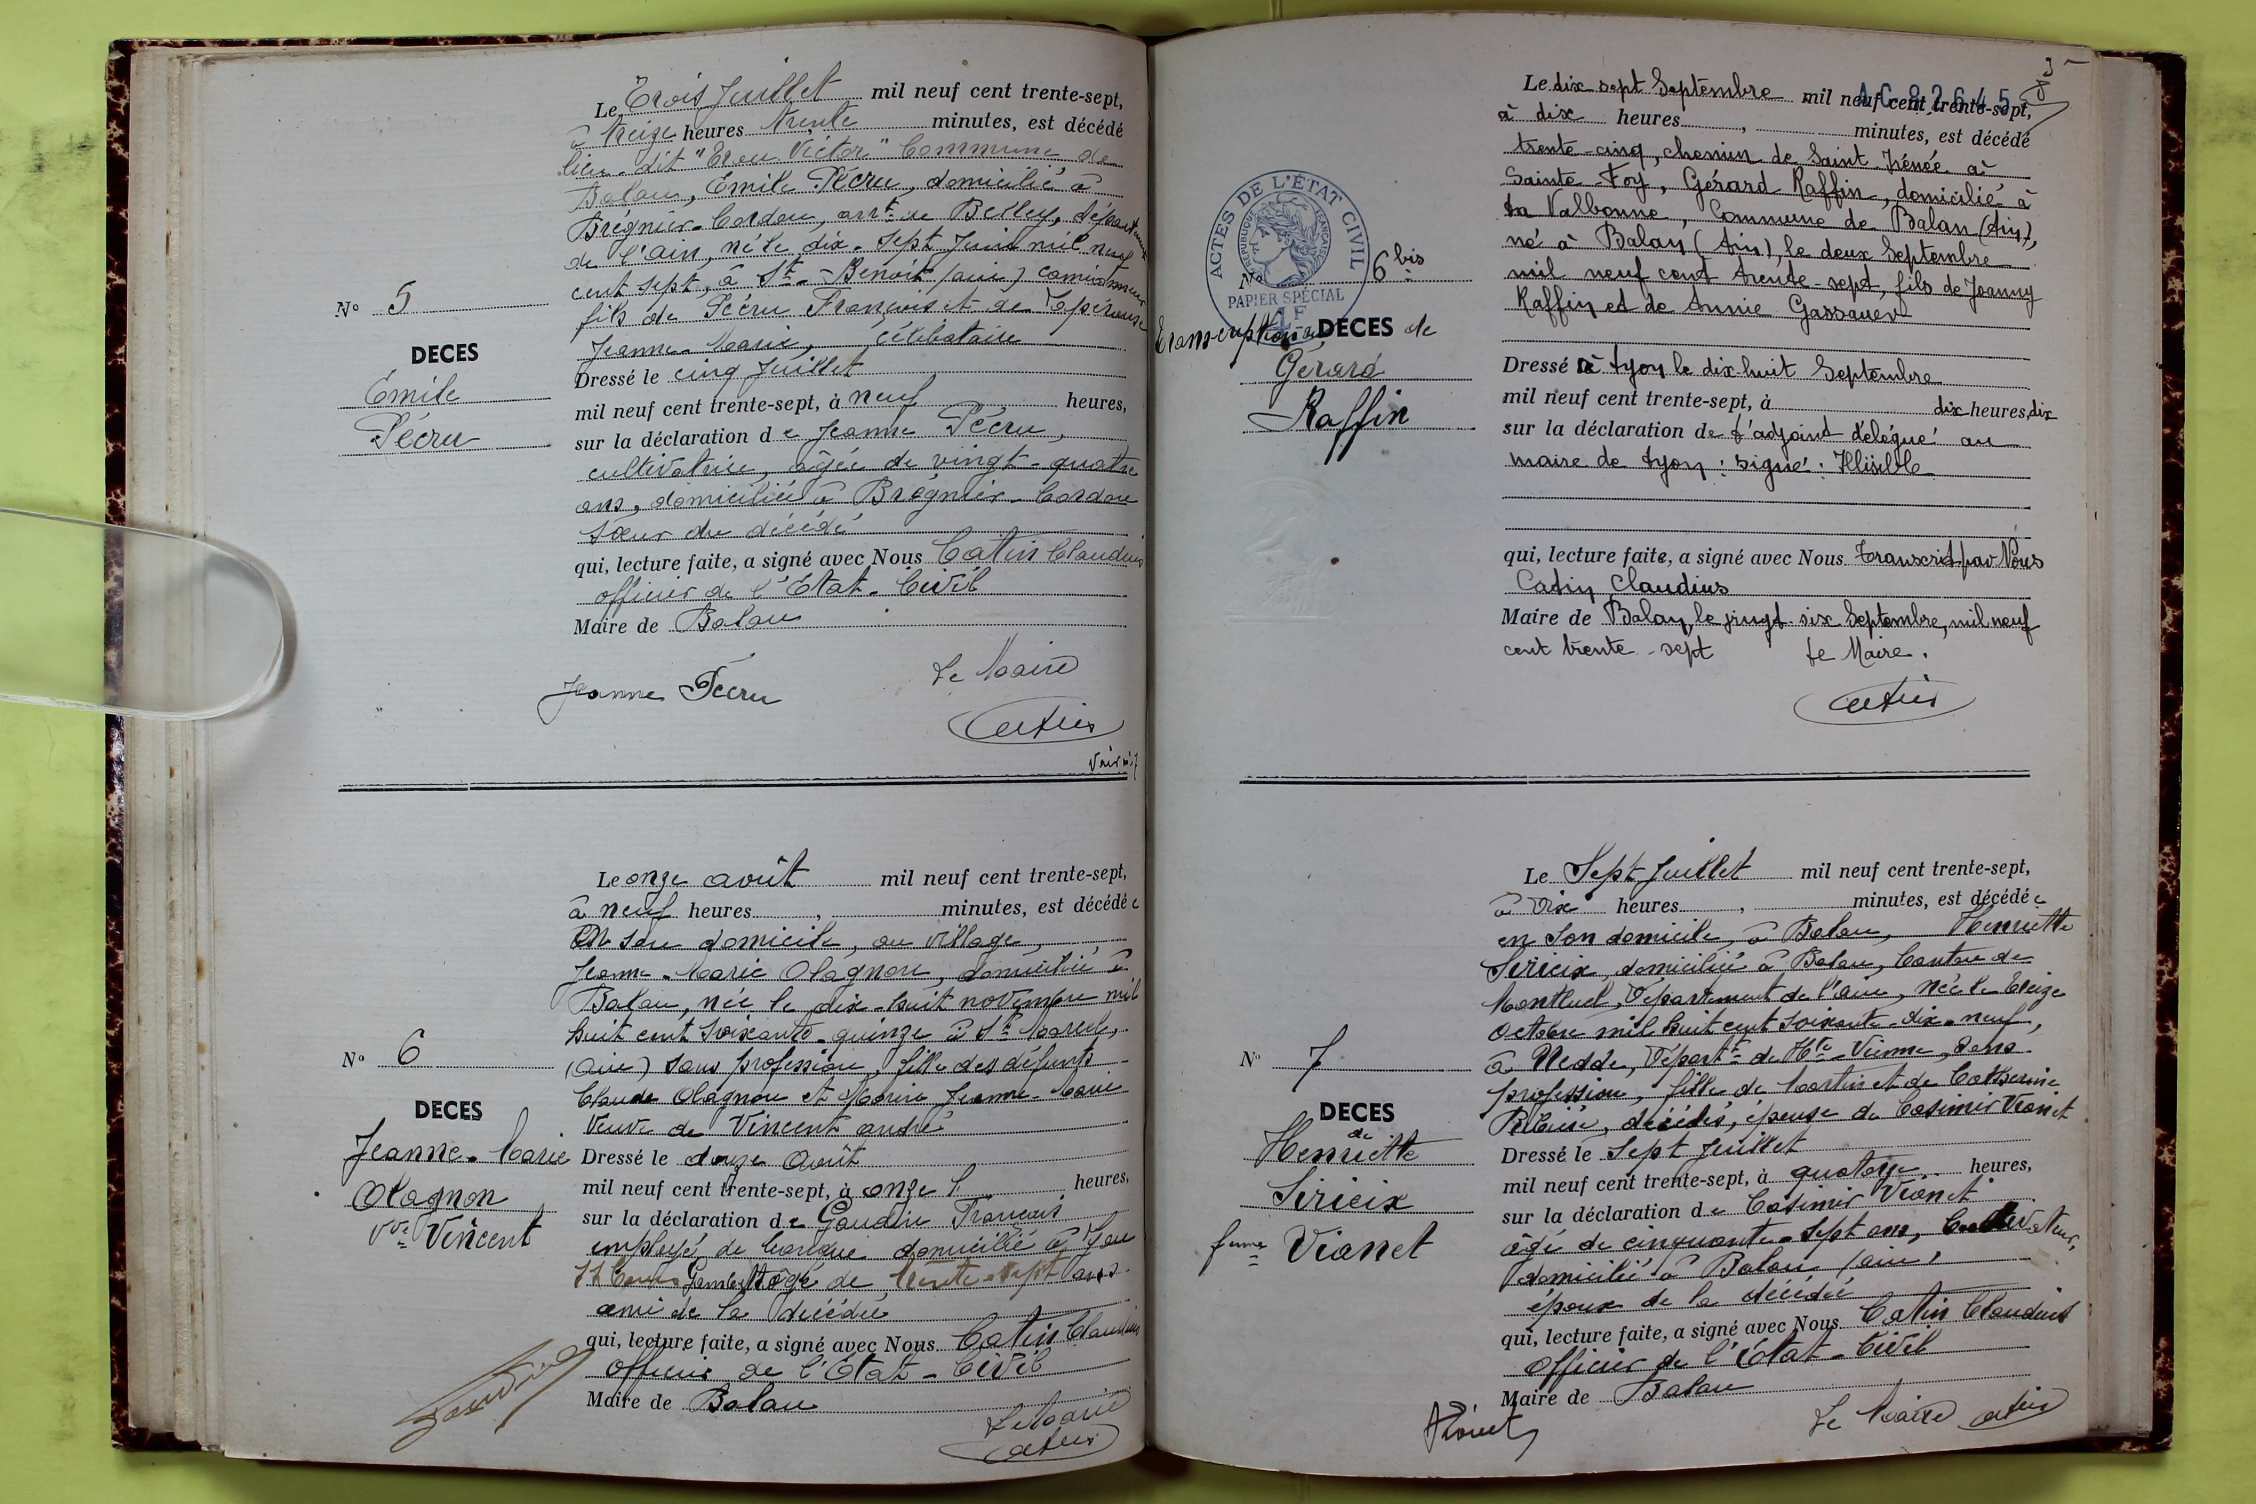 Le Trois Juillet mil neuf cent trente-sept,
à treize heures trente minutes, est décédé
lieu-dit "Trou Victor" Commune de
Balan, Émile Pécru, domicilié à
Brégnier-Cordon, arrt de Belley, département
de l'ain, né le dix-sept Juin mil neuf
cent sept, à St-Benoit (ain) camionneur
fils de Pécru François et de Lapérouse
Jeanne-Marie, célibataire
Nº 5
DECES
Émile
Pécru
Dressé le cinq Juillet
mil neuf cent trente-sept, à neuf heures,
sur la déclaration de Jeanne Pécru,
cultivatrice, âgée de vingt-quatre
ans, domiciliée à Brégnier-Cordon
sœur du décédé
qui, lecture faite, a signé avec Nous Catin Claudius
officier de l'État-Civil
Maire de Balan
Jeanne Pécru
Le Maire
Catin
Voir nº 7
Le onze août mil neuf cent trente-sept,
à neuf heures, minutes, est décédée
en son domicile, au village,
Jeanne-Marie Olagnon, domiciliée à
Balan, née le dix-huit novembre mil
huit cent soixante-quinze à St Marcel,
(ain) sans profession, fille des défunts
Claude Olagnon et Morin Jeanne-Marie
Veuve de Vincent andré
Nº 6
DECES
Jeanne-Marie
Olagnon
Vve Vincent
Dressé le douze Août
mil neuf cent trente-sept, à onze h heures,
sur la déclaration de Gaudin François
employé de banque domicilié à Lyon
Cours Gambetta âgé de trente-sept ans
ami de la décédée
qui, lecture faite, a signé avec Nous Catin Claudius
Officier de l'État-Civil
Maire de Balan
Gaudin
Le Maire
Catin
AC 82645
Le dix sept Septembre mil neuf cent trente-sept,
à dix heures, minutes, est décédé
trente-cinq, chemin de Saint Irénée à
Sainte-Foy, Gérard Raffin, domicilié à
La Valbonne, Commune de Balan (Ain),
né à Balan (Ain), le deux Septembre
mil neuf cent trente-sept, fils de Joanny
Raffin et de Annie Gassauer
ACTES DE L'ÉTAT CIVIL
RÉPUBLIQUE FRANÇAISE
PAPIER SPÉCIAL
4F
Nº 6 bis
Transcription DECES de
Gérard
Raffin
Dressé à Lyon le dix-huit Septembre
mil neuf cent trente-sept, à dix heures, dix
sur la déclaration de l'adjoint délégué au
maire de Lyon : signé : Illisible
qui, lecture faite, a signé avec Nous Transcrit par Nous
Catin Claudius
Maire de Balan, le vingt-six Septembre, mil neuf
cent trente-sept Le Maire.
Catin
Le Sept Juillet mil neuf cent trente-sept,
à dix heures, minutes, est décédée
en son domicile, à Balan, Henriette
Sirieix, domiciliée à Balan, Canton de
Montluel, Département de l'ain, née le treize
octobre mil huit cent soixante-dix-neuf,
à Nedde, Départt de Hte-Vienne, sans
profession, fille de Martin et de Catherine
décédés, épouse de Casimir Vianet
Nº 7
DECES
de
Henriette
Sirieix
femme Vianet
Dressé le Sept Juillet
mil neuf cent trente-sept, à quatorze heures,
sur la déclaration de Casimir Vianet
âgé de cinquante-sept ans, Cultivateur,
domicilié à Balan (ain)
époux de la décédée
qui, lecture faite, a signé avec Nous Catin Claudius
Officier de l'État-Civil
Maire de Balan
Vianet
Le Maire Catin